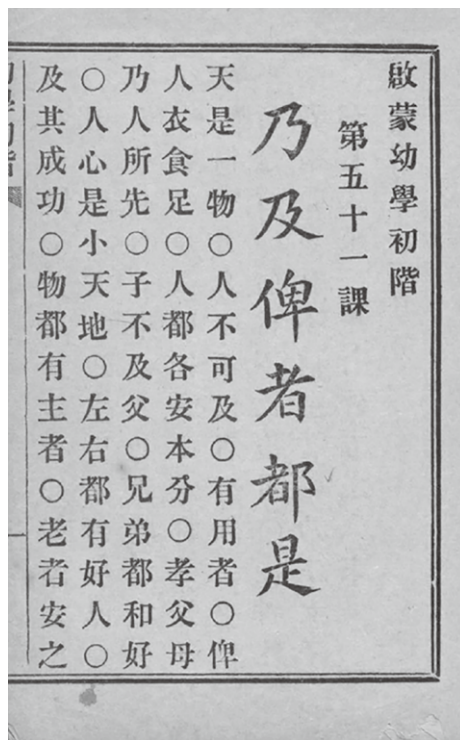 啟蒙幼學初階
第五十一課
乃及俾者都是
天是一物○人不可及○有用者○俾
人衣食足○人都各安本分○孝父母
乃人所先○子不及父○兄弟都和好
○人心是小天地○左右都有好人○
及其成功○物都有主者○老者安之